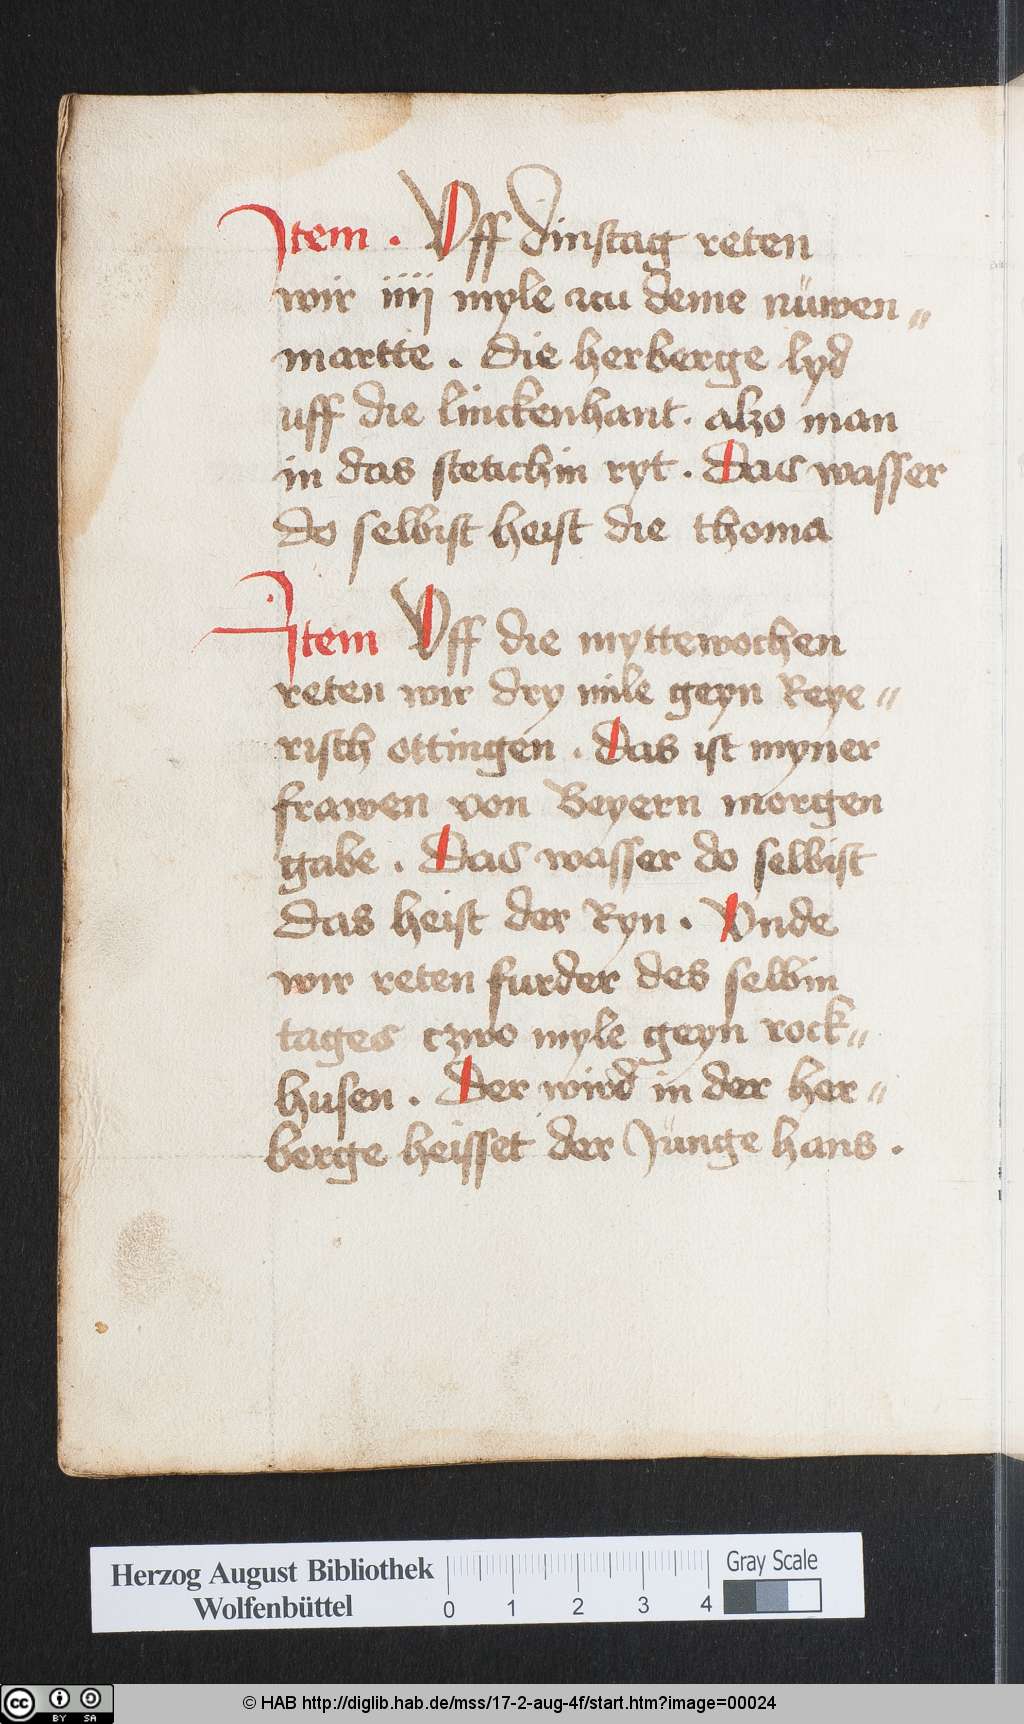 Item . Vff dinstag reten
wir iiij myle zcu deme nüwen〃
martte . die herberge lyd
uff die linckenhant . alzo man
in das stetichin ryt . Das wasser
do selbist heist die thoma
Item Vff die myttewochen
reten wir dry mile geyn Beye〃
risch ottingen . Das ist myner
frawen von Beyern morgen
gabe . Das wasser do selbist
das heist der Ryn . Vnde
wir reten furder des selbin
tages czwo myle geyn rock〃
husen . Der wird in der her〃
berge heisset der Junge hans .
Herzog August Bibliothek
Wolfenbüttel
0 1 2 3 4
Gray Scale
cc BY SA
© HAB http://diglib.hab.de/mss/17-2-aug-4f/start.htm?image=00024